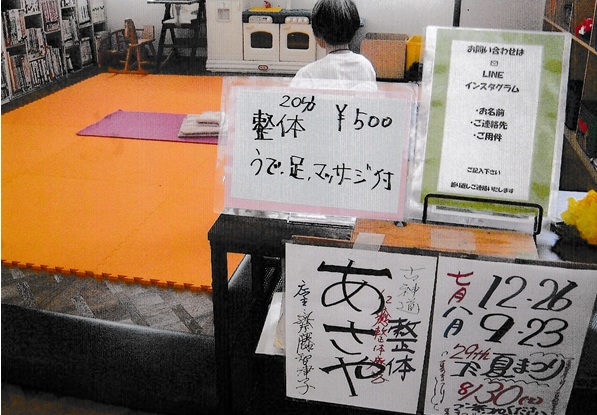 20分
整体 ¥500
うで、足、マッサージ付
お問い合わせは
LINE
インスタグラム
・お名前
・ご連絡先
・ご用件
ご記入下さい
折り返しご連絡いたします
古神道
整体
あさや
七月 12.26
八月 9.23
29th
夏まつり
8/30